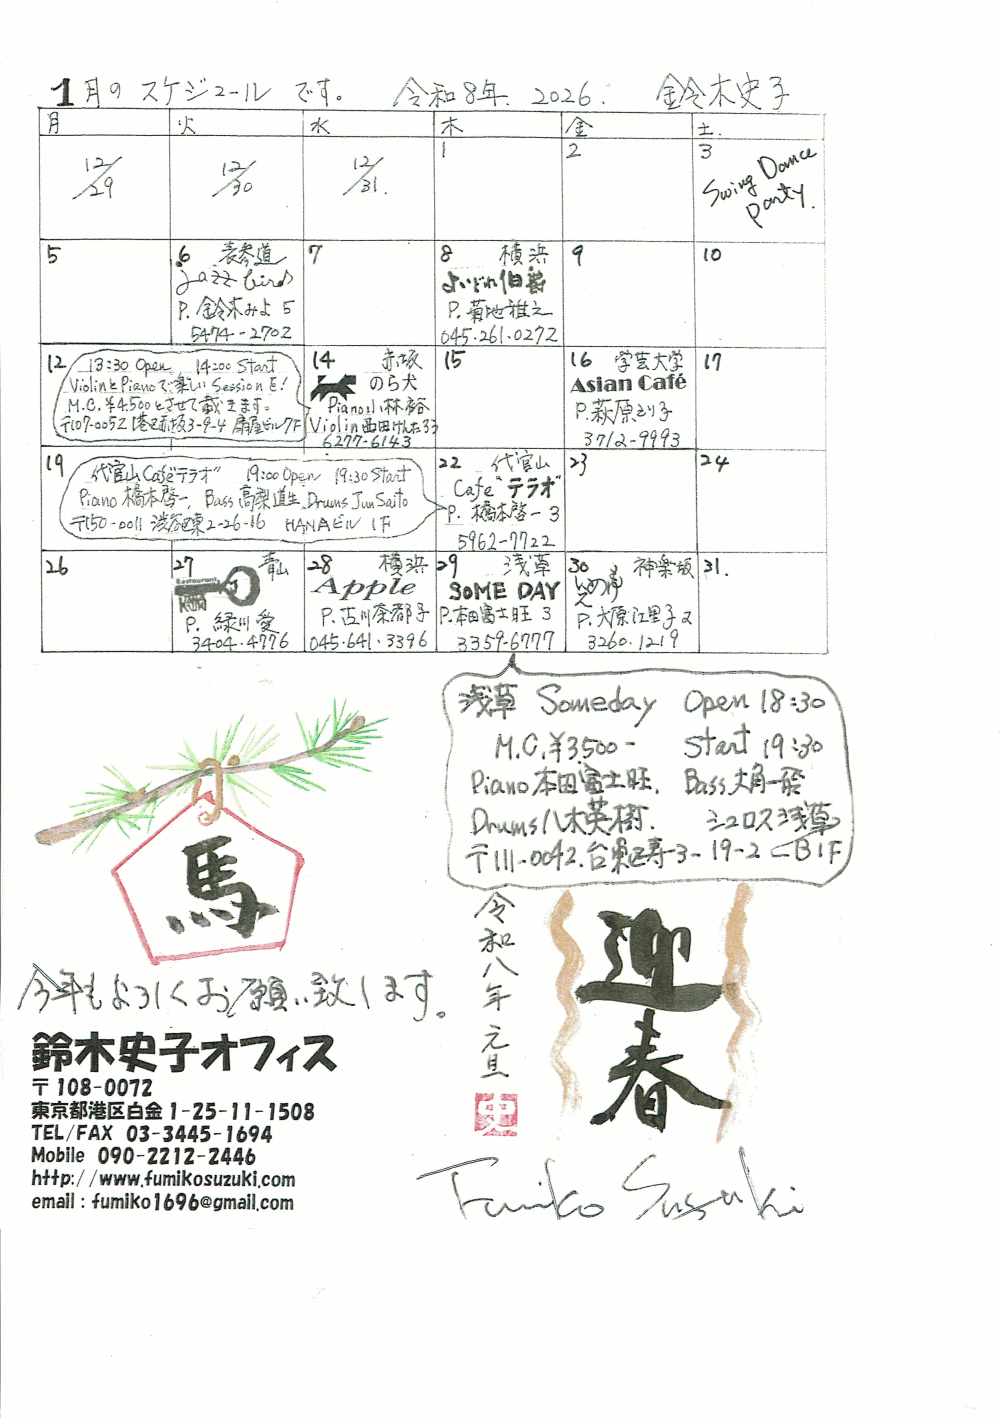 1月のスケジュールです。 令和8年. 2026. 鈴木史子
月 火 水 木 金 土.
12/29 12/30 12/31. 1 2 3
Swing Dance
Party.
5 6 表参道 7 8 横浜 9 10
Jazz bird
よいどれ伯爵
P. 鈴木みよ 5
P. 菊地雅之
5474-2702
045.261.0272
12 13:30 Open 14:00 Start
ViolinとPianoで楽しいSessionを!
M.C.¥4,500とさせて戴きます。
〒107-0052 港区赤坂3-9-4 扇屋ビル7F
14 赤坂
のら犬
Piano:小林裕
Violin 西田けんた33
6277-6143
15
16 学芸大学
Asian Café
P. 萩原より子
3712-9993
17
19
代官山Café"テラオ" 19:00 Open 19:30 Start
Piano 橋本啓一, Bass 高梨道生, Drums Jun Saito
〒150-0011 渋谷区東2-26-16 HANAビル 1F
22 代官山
Cafe "テラオ"
P. 橋本啓一 3
5962-7722
23 24
26
27 青山
Restaurant
P. 緑川愛
3404.4776
28 横浜
Apple
P. 古川奈都子
045.641.3396
29 浅草
SOME DAY
P. 本田富士旺 3
3359-6777
30 神楽坂
P. 大原江里子 2
3260.1219
31.
浅草 Someday Open 18:30
M.C.¥3,500- Start 19:30
Piano 本田富士旺, Bass 大角一飛
Drums 八木英樹. シュロス浅草
〒111-0042. 台東区寿-3-19-2 B1F
馬
今年もよろしくお願い致します。
令和八年元旦
史
迎春
鈴木史子オフィス
〒108-0072
東京都港区白金1-25-11-1508
TEL/FAX 03-3445-1694
Mobile 090-2212-2446
http://www.fumikosuzuki.com
email : fumiko1696@gmail.com
Fumiko Suzuki